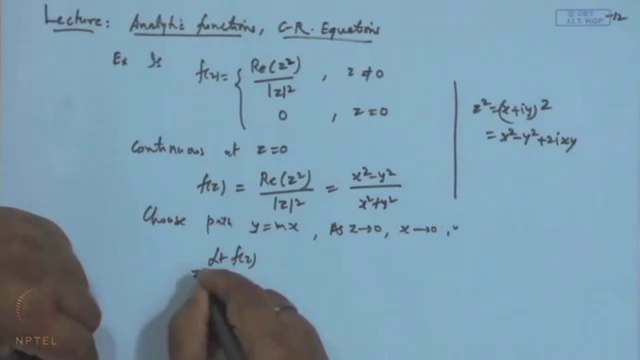 Lecture: Analytic functions, C-R. Equations
© CET
I.I.T. KGP
Ex Is f(z) = { Re(z²)/|z|² , z ≠ 0
0 , z = 0
Continuous at z=0
f(z) = Re(z²)/|z|² = x²-y²/x²+y²
Choose path y=mx , As z→0, x→0 ,
Lt f(z)
=
z² = (x+iy)²
= x²-y²+2ixy
NPTEL